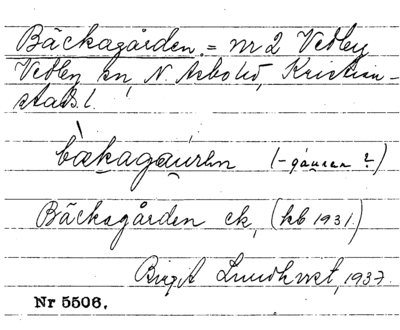 Bäckagården = nr 2 Vedby
Vedby sn, N Åsbo hd, Kristian-
stads l.
bækagaúrǝn (-gáurǝn ?)
Bäcksgården ek. (kb 1931)
Birgit Lundkvist, 1937.
Nr 5506.